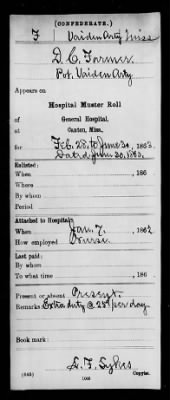 (CONFEDERATE.)
F Vaiden Arty Miss
D. C. Farmer
Pvt. Vaiden Arty
Appears on
Hospital Muster Roll
of
General Hospital,
Canton, Miss.,
for Feb. 28. to June 30, 1863.
Dated June 30, 1863.
Enlisted:
When , 186
Where
By whom
Period
Attached to Hospital:
When Jan. 7. , 1862
How employed Nurse
Last paid:
By whom
To what time , 186
Present or absent Present.
Remarks: Extra duty @ 25¢ per day
Book mark:
D. F. Sykes
(645) Copyist.